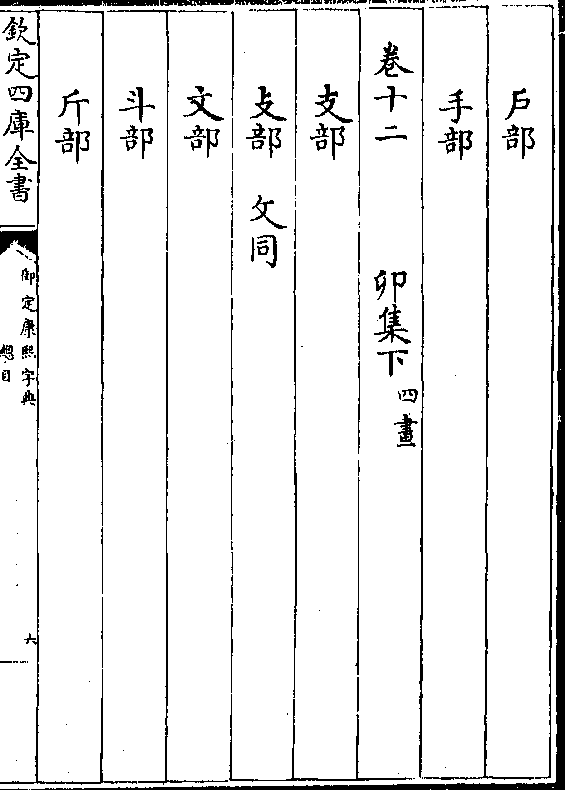 戶部
手部
卷十二 卯集下 四畫
支部
攴部 攵同
文部
斗部
斤部
欽定四庫全書
御定康熙字典
總目
六